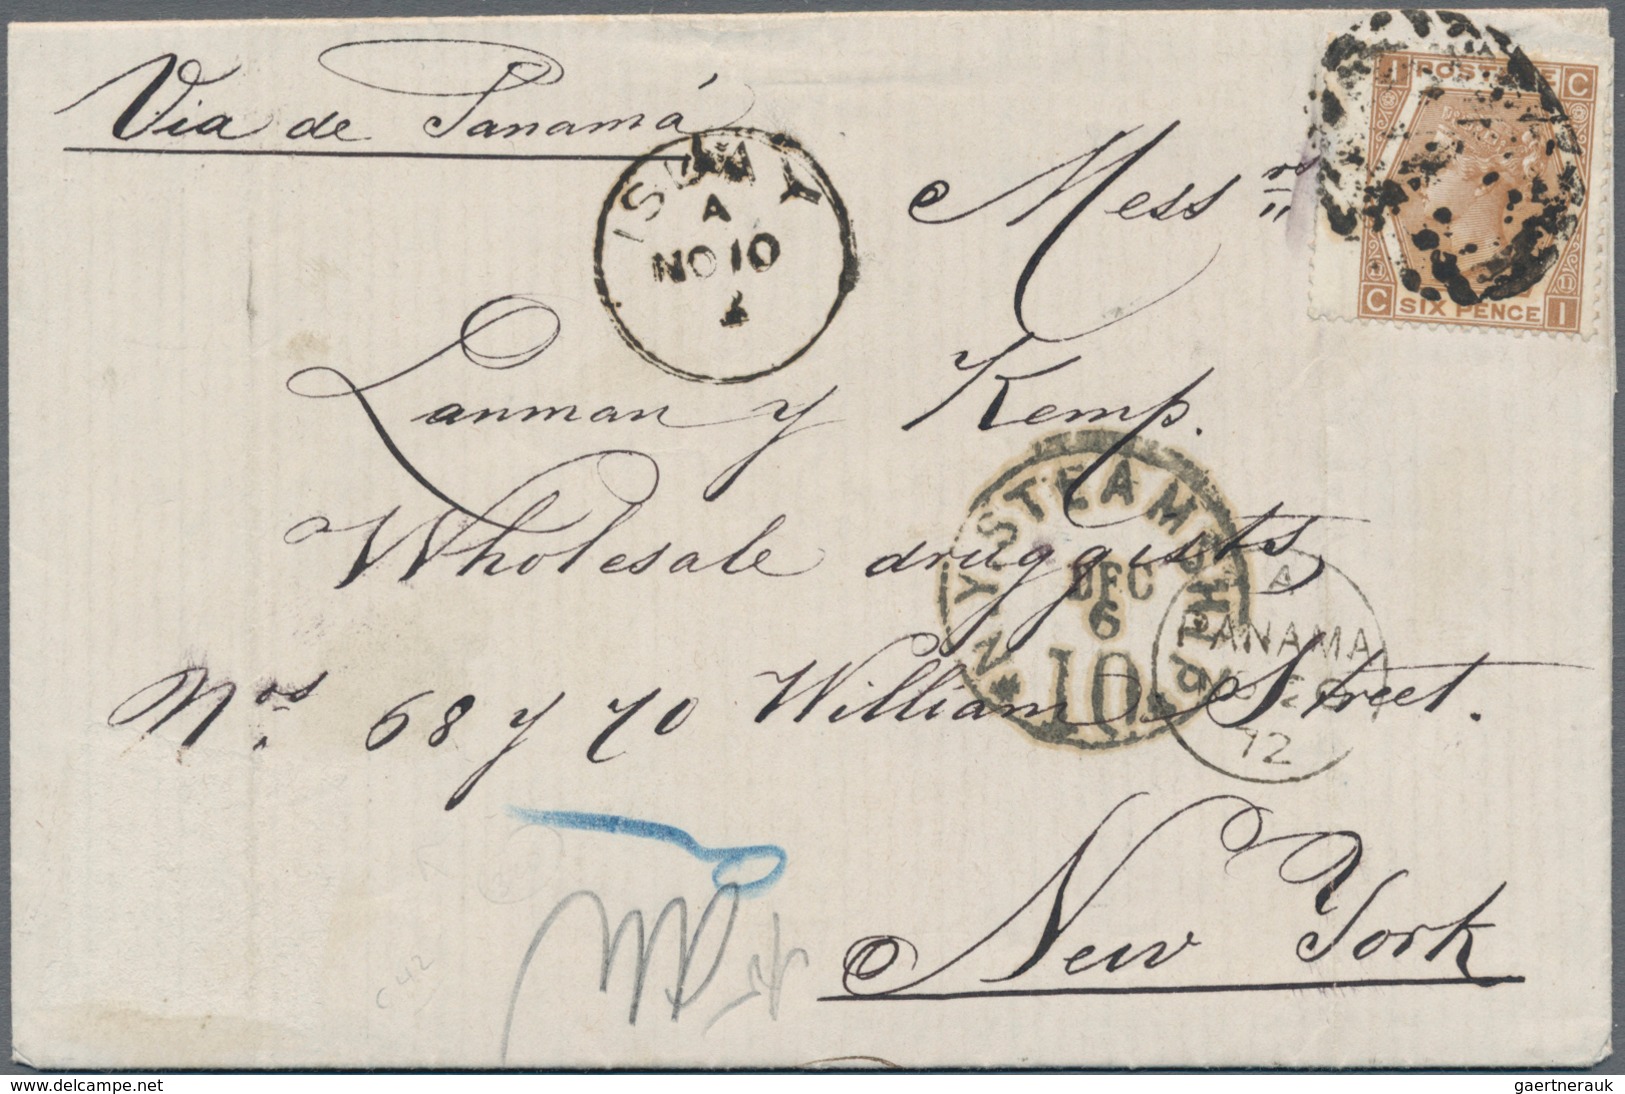 Via de Panamá
ISLAY
A
NO 10
Mess.rs
I POSTAGE C
C SIX PENCE I
11
Lanman y Kemp.
Wholesale druggists
N.Y. STEAMSHIP
DEC
6
10
A
PANAMA
72
Nos. 68 y 70 William Street.
New York
C 42
www.delcampe.net
gaertnerauk